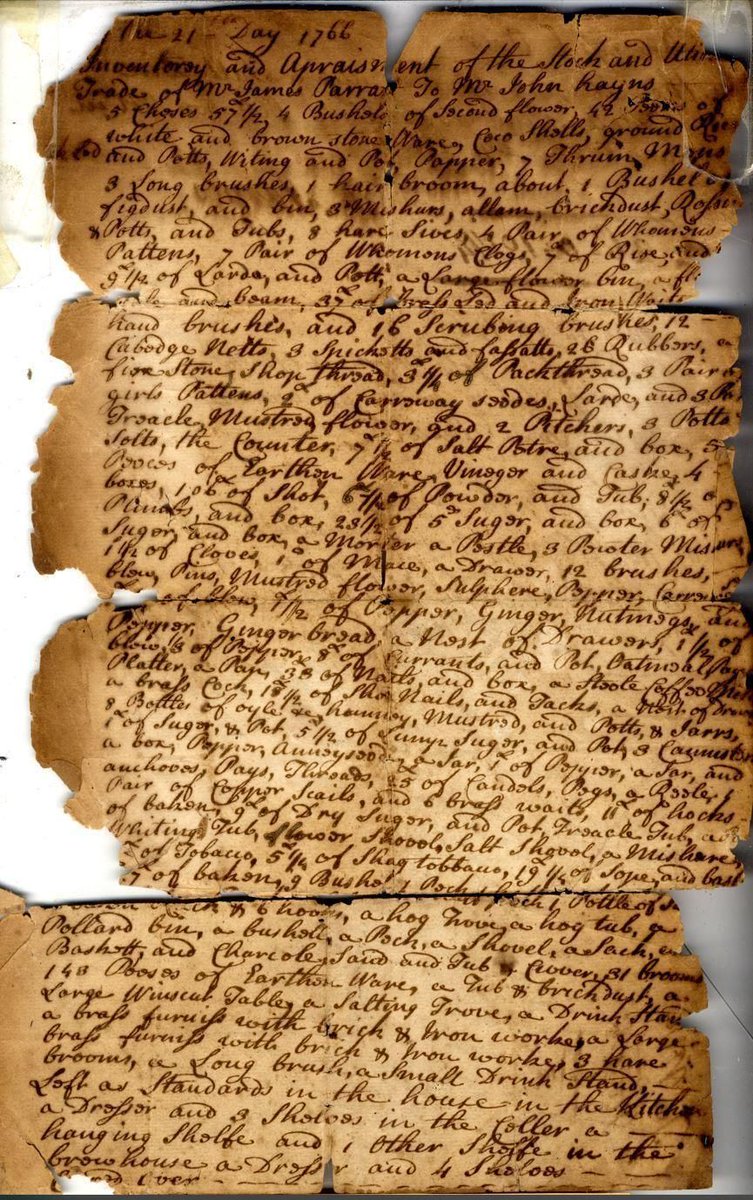 the 21 Day 1766
Inventorey and Apraisment of the Stock and
Trade of Mr James Parrat To Mr John hayns
5 Cheses 57 1/2, 4 Bushels of Second flower, 42 of
white and brown stone Ware, Coco Shells, ground
and Potts, Witing and Pot, Papper, 7 Thrum Mops
3 Long brushes, 1 hair broom, about 1 Bushel
figdust, and bin, 3 Mishurs, allem, brickdust,
& Potts, and Tubs, 8 hare Sives, 4 Pair of Whomens
Pattens, 7 Pair of Whomens Clogs, 7 of Rise and
9 1/2 of Larde, and Pott, a Large flower bin, a
and beam, 37 of brass Led and Iron Waits
hand brushes, and 16 Scrubing brushes, 12
Cabodge Netts, 3 Spicketts and fassatts, 26 Rubbers, a
fier Stone, Shop thread, 3 1/4 of Packthread, 3 Pair
girls Pattens, 2 of Carreway seedes, Larde, and 3
Treacle, Mustred flower, and 2 Pitchers, 3 Potts
Solts, the Counter, 7 1/2 of Salt Petre, and box, 5
Peeces of Earthen Ware, Vineger and Caske, 4
boxes, 106 of Shot, 6 1/2 of Powder, and Tub, 8 1/2
and box, 23 1/2 of 5 Suger, and box, 6 of
Suger, and box, a Morter a Pestle, 3 Pewter
1 1/2 of Cloves, 1 of Mace, a Drawer, 12 brushes,
blew, Pins, Mustred flower, Sulphere, Pepper,
of blew, 1 1/2 of Pepper, Ginger, Nutmegs, and
Pepper, Ginger bread, a Nest of Drawers, 1 1/2 of
blew, 8 of Pepper, 8 of Currants, and Pot, Oatmeal
Platter, a Pay, 38 of Nails, and box, a Steele Coffee
a brass Cock, 18 1/2 of Shoe Nails, and Tacks, a Nest of
8 Bottles of oyle & hunney, Mustred, and Potts, & Jarrs,
1 of Suger, & Pot, 5 1/2 of Suger, and Pot, 3
a box, Pepper, Anneyseed, a Jar, 1 of Pepper, a Jar, and
anchoves, Pays, Threads, 25 of Candels, Pegs, a Reele, 1
Pair of Copper Scails, and 6 brass waits, 11 of hocks
of baken, 9 of Dry Suger, and Pot, Treacle Tub, a
Whiting Tub, flower Shovel, Salt Shovel, a Mishure,
of Tobacco, 5 1/4 of Shag tobbaco, 19 1/4 of Sope, and
7 of baken, 9 Bushels 1 Pottle of
& 6 hoops, a hog Trove, a hog tub, a
Pollard bin, a bushell, a Peck, a Shovel, a Sack,
Baskett, and Charcole, Sand and Tub & Cover, 31 brooms
143 Peeses of Earthen Ware, a Tub & brickdust, a
Large Winscut Table, a Salting Trove, a Drink Stan
a brass furniss with brick & Iron worke, a Large
brass furniss with brick & Iron worke, 3 hare
brooms, a Long brush, a Small Drink Stand,
Left as Standards in the house in the Kitchen
a Dresser and 3 Shelves in the Celler a
hanging Shelfe and 1 Other Shelfe in the
brewhouse a Dresser and 4 Shelves